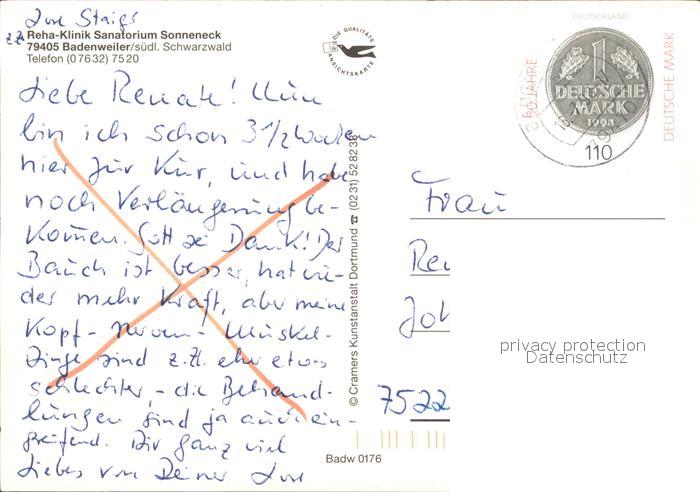 z.Zt.
Reha-Klinik Sanatorium Sonneneck
79405 Badenweiler/südl. Schwarzwald
Telefon (0 76 32) 75 20
Liebe Renate! Nun
bin ich schon 3 1/2 Wochen
hier zur Kur, und habe
noch Verlängerung be-
kommen. Gott sei Dank! Der
Bauch ist besser, hat wie-
der mehr Kraft, aber meine
Kopf- Nerven- Muskel-
Dinge sind z.Zt. eher etwas
schlechter, - die Behand-
lungen sind ja auch ein-
greifend. Dir ganz viel
Liebes von Deiner
DIE QUALITÄTS
ANSICHTSKARTE
© Cramers Kunstanstalt Dortmund ☎ (0231) 528238
Badw 0176
DEUTSCHLAND
50 JAHRE
DEUTSCHE MARK
1
DEUTSCHE
MARK
110
Frau
Re
Joh
7522
privacy protection
Datenschutz